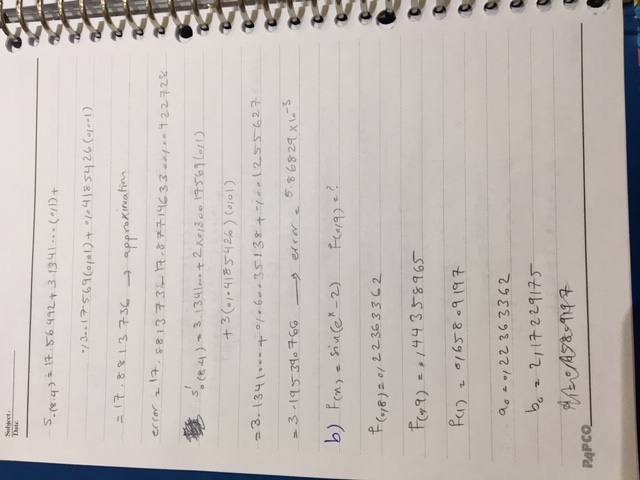 Subject:
Date
S.(8.4) = 17.56492 + 3.1341...(0/1) +
0/300 17569(0/01) + 0/04185426(0/001)
= 17.8813736 → approximation
error = 17.881373 - 17.87714633 = 0/00422728
S'₀(8.4) = 3.1341000 + 2×0/300 17569(0/1)
+ 3(0/04185426)(0/01)
= 3.1341000 + 0/0600 35138 + 0/001255627
= 3.195390766 → error = 5.86829 × 10⁻³
b) f(x) = sin(eˣ - 2) f(0/9) = ?
f(0/8) = 0/22363362
f(0/9) = 0/44358965
f(1) = 0/65809197
a₀ = 0/22363362
b₀ = 2/17229175
PAPCO